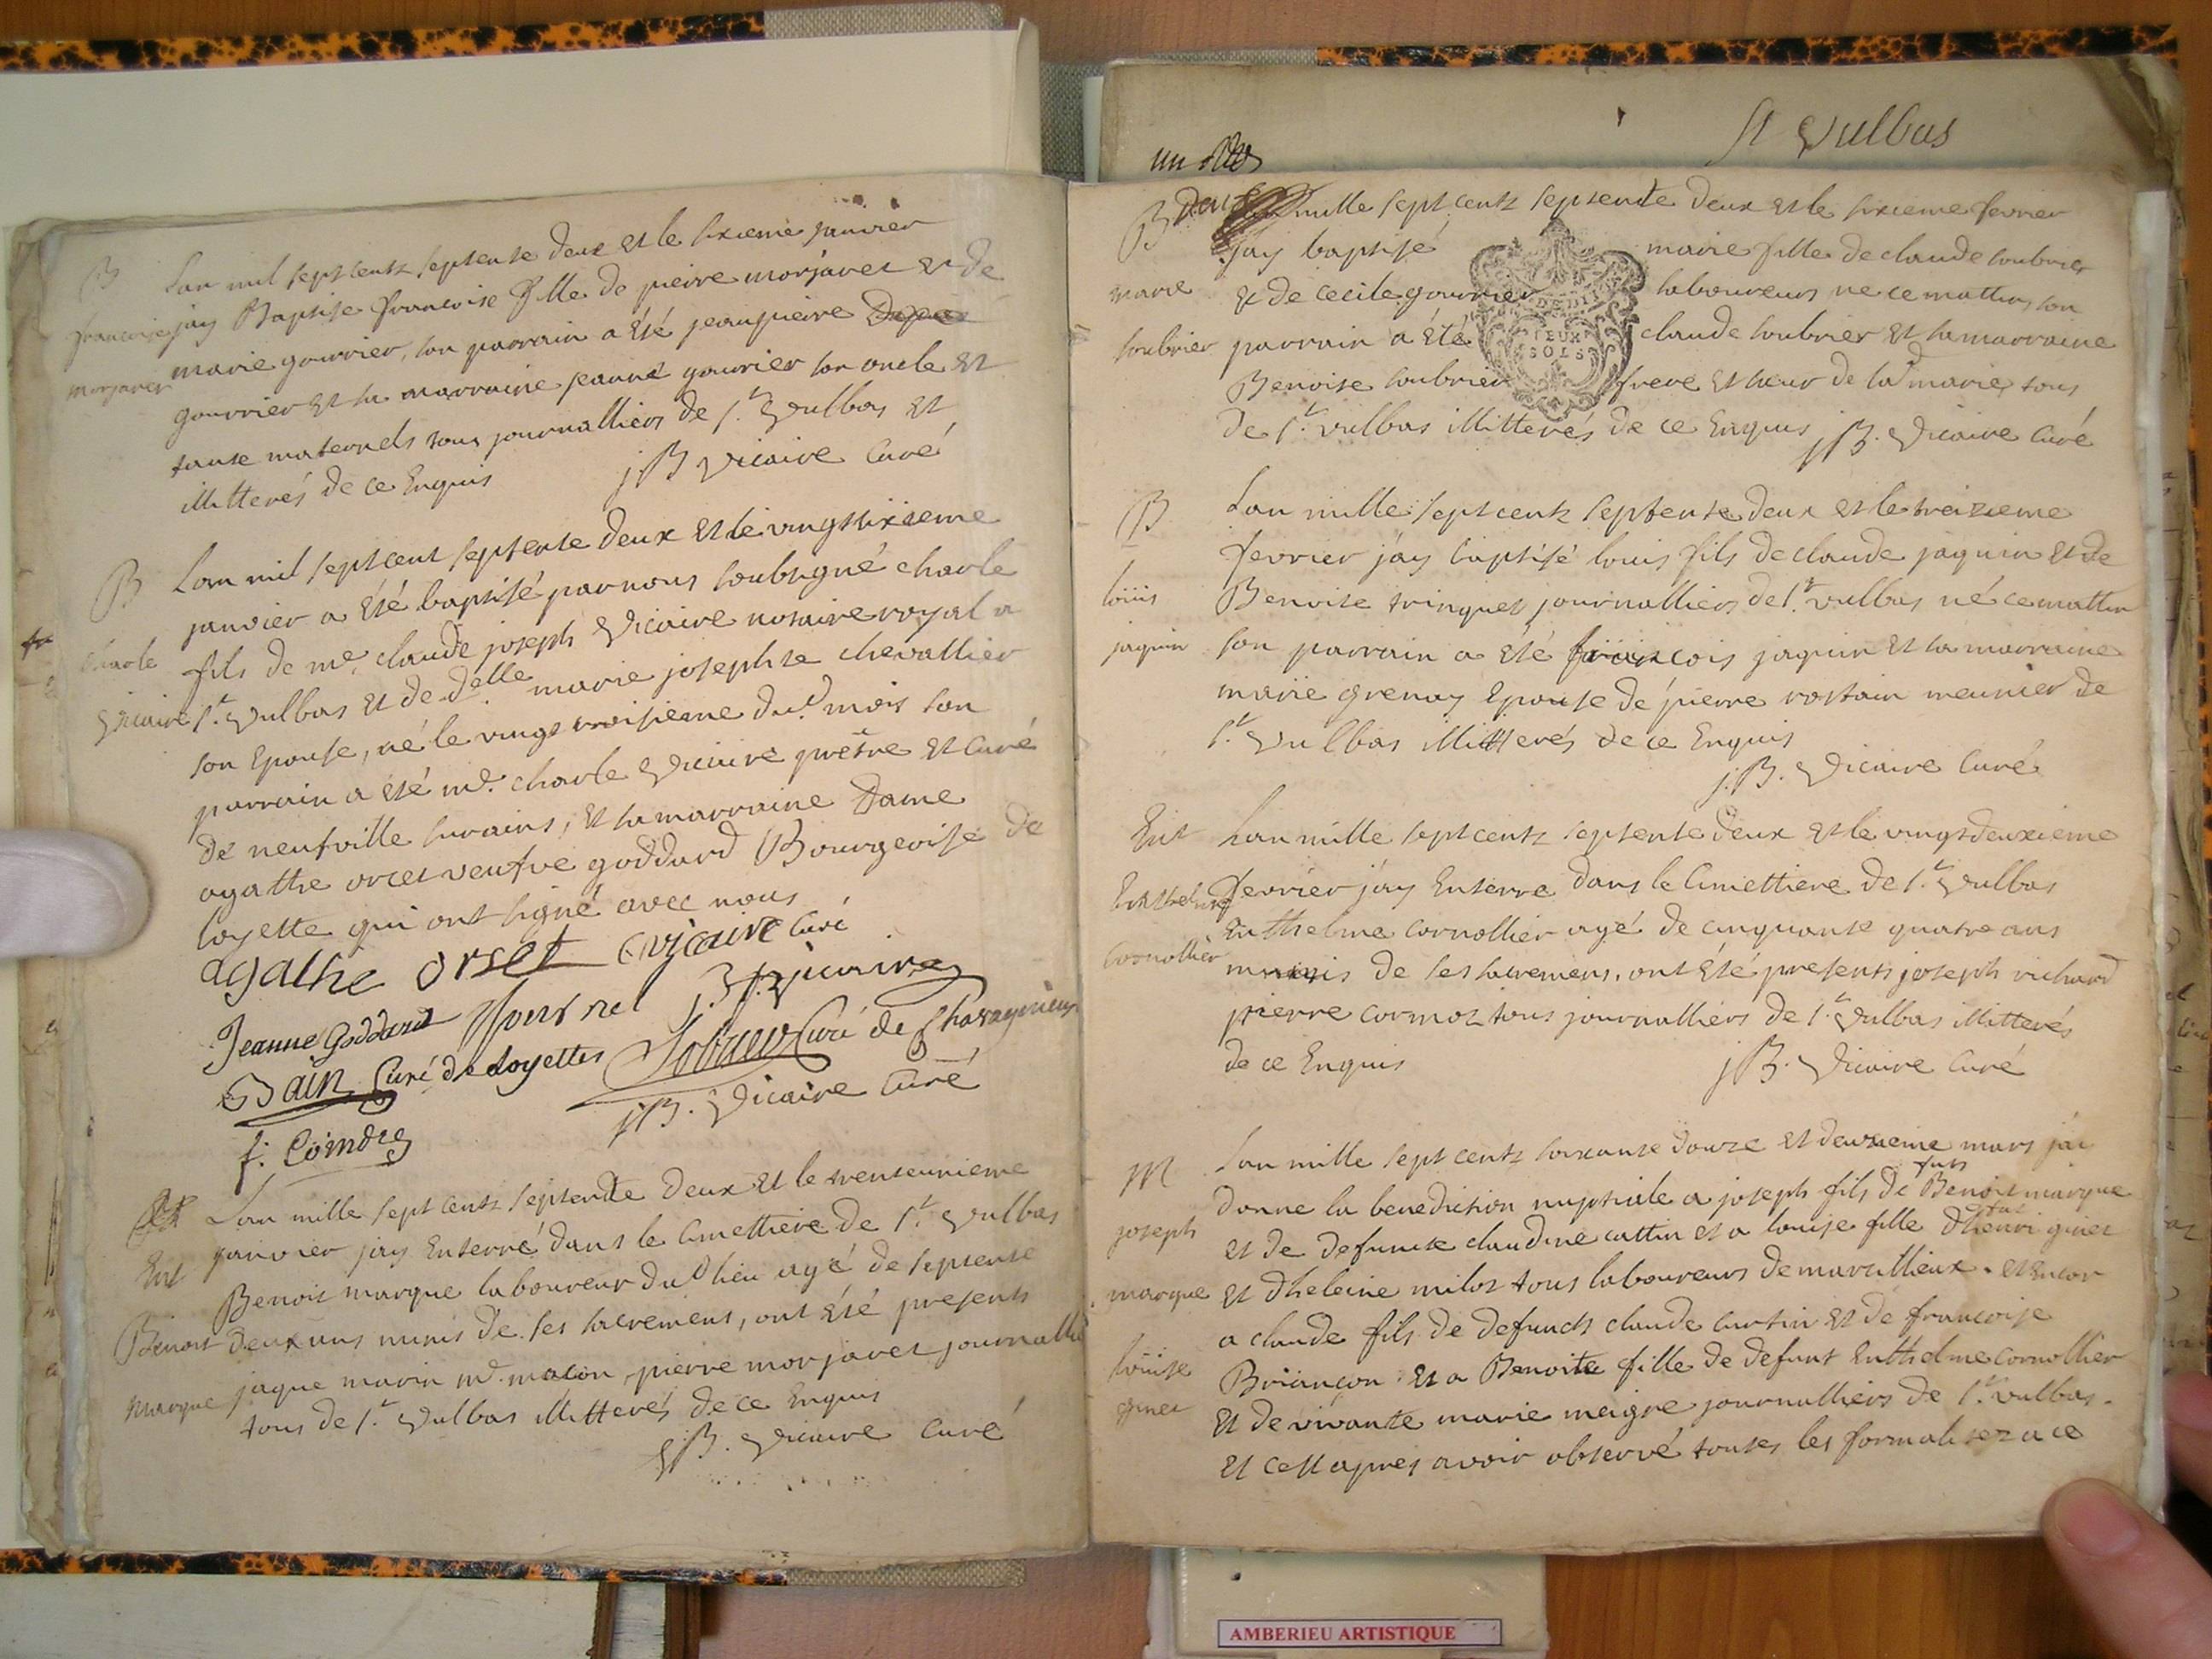 B
Lan mil sept cents septente deux et le sixieme janvier
francoise jay Baptise francoise fille de pierre morjaret et de
morjaret marie gourrier, son parrain a été jeanpierre
gourrier et la marraine jeanne gourier son oncle et
tante maternels tous journalliers de st. vulbas et
illitterés de ce Enquis j B vicaire Curé
B
Lan mil sept cent septente deux et le vingt sixieme
janvier a été baptisé par nous soubsigné charle
charle fils de me. claude joseph vicaire notaire royal a
vicaire st. vulbas et de delle marie josephte chevallier
son Epouse, né le vingt troisieme dud. mois son
parrain a été mr. charle vicaire prêtre et curé
de neufville surains, et la marraine Dame
agathe orcet veufve goddard Bourgeoise de
loyette qui ont signé avec nous
agathe orset C vicaire Curé
Jeanne Goddard j. B. vicaire
Bain Curé de Loyettes Curé de Charagnieux
f. Coindre j B. vicaire Curé
Lan mille sept cents septente deux et le trenteunieme
Ent janvier jay Enterré dans le Cimettiere de st. vulbas
Benoit marque laboureur dud lieu agé de septente
Benoit deux ans munis de ses sacremens, ont été presents
marque jaque marin md. macon, pierre morjaret journallie
tous de st. vulbas illitterés de ce Enquis
j B. vicaire Curé
St Vulbas
B deux mille sept cents septente deux et le sixieme fevrier
jay baptisé marie fille de claude soubrier
marie & de cecile gourrier laboureurs né ce mattin, son
DEUX
SOLS
soubrier parrain a été claude soubrier et la marraine
Benoite soubrier frere et sœur de lad marie, tous
de st. vulbas illitterés de ce Enquis j B. vicaire Curé
B
Lan mille sept cents septente deux et le treizieme
fevrier j'ay baptisé louis fils de claude jaquin et de
loüis Benoite trinquet journalliers de st. vulbas né ce mattin
jaquin son parrain a été françois jaquin et la marraine
marie grenay Epouse de pierre rostain meunier de
st. vulbas illitterés de ce Enquis
j. B. vicaire Curé
Ent Lan mille sept cents septente deux et le vingt deuxieme
Enthelme fevrier j'ay Enterré dans le Cimettiere de st. vulbas
Enthelme cornollier agé de cinquante quatre ans
Cornollier munis de ses sacremens, ont été presents joseph richard
pierre cormoz tous journalliers de st. vulbas illitterés
de ce Enquis j B. vicaire Curé
M Lan mille sept cents soixante douze et deuxieme mars jai
donné la benediction nuptiale a joseph fils de Benoit marque
joseph et de defunte claudine cattin et a louise fille dhenri ginet
marque et dheleine milot tous laboureurs de marcillieux. et encor
a claude fils de defunct claude curtin et de francoise
loüise Briançon et a Benoite fille de defunt Enthelme cornollier
ginet et de vivante marie meigre journalliers de st. vulbas.
et cest apres avoir observé toutes les formalitez a ce
AMBERIEU ARTISTIQUE